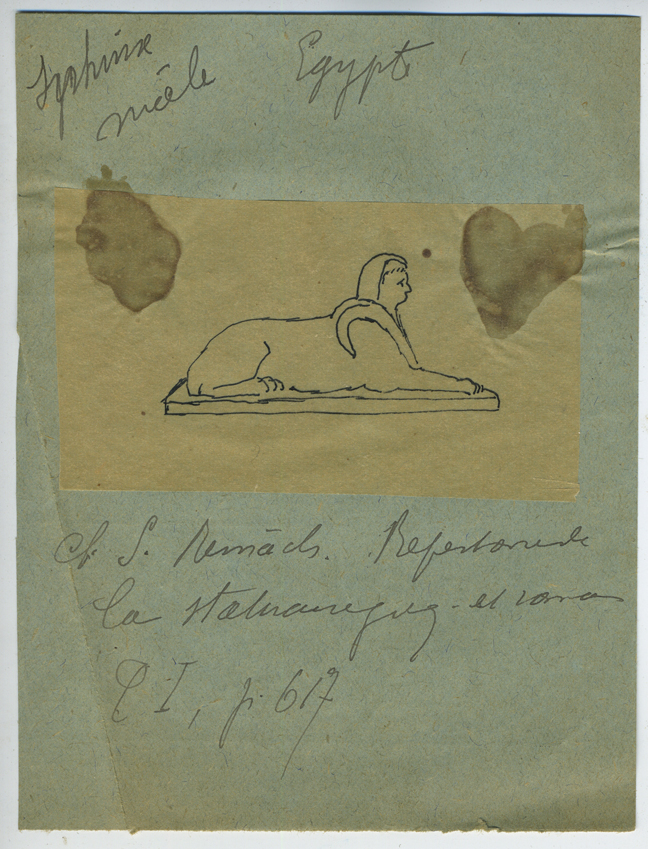 Sphinx
mâle
Egypte
Cf. S. Reinach. Répertoire de
la statuaire grecq. et romai
T I, p. 617